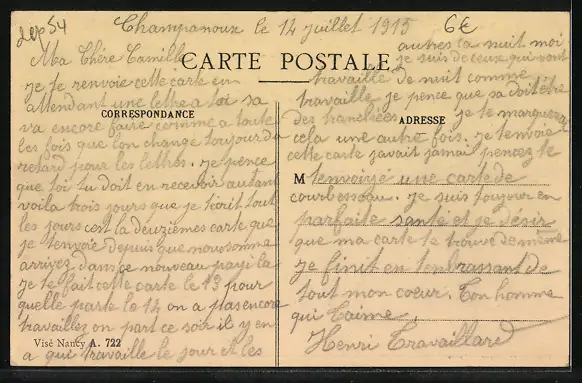 dep 54
6€
Champanoux le 12 juillet 1915
Ma Chère Camille
CARTE POSTALE
je te renvoie cette carte en
attendant une lettre a toi sa
CORRESPONDANCE
va encore faire comme a toute
les fois que l'on change toujour du
retard pour les lettres. je pence
que toi tu doit en recevoir autant
voila trois jours que je t'ecrit tout
les jours cest la deuxièmes carte que
je t'envoie depuis que nous somme
arrivez dans ce nouveau payi la
je te fait cette carte le 13 pour
quelle parte le 14 on a pas encore
travailles on part ce soir il y en
Visé Nancy A. 722
a qui travaille le jour et les
autres la nuit moi
je suis de ceux qui vont
travaille de nuit comme
travaille je pence que sa doit être
des tranchées je te marquerai
ADRESSE
cela une autre fois. je t'envoie
cette carte javait jamai pencez te
M
t'envoyé une carte de
courbessaux. je suis toujour en
parfaite santé et je désir
que ma carte te trouve de même
je finit en t'embrassant de
tout mon coeur. Ton homme
qui t'aime.
Henri Travaillard